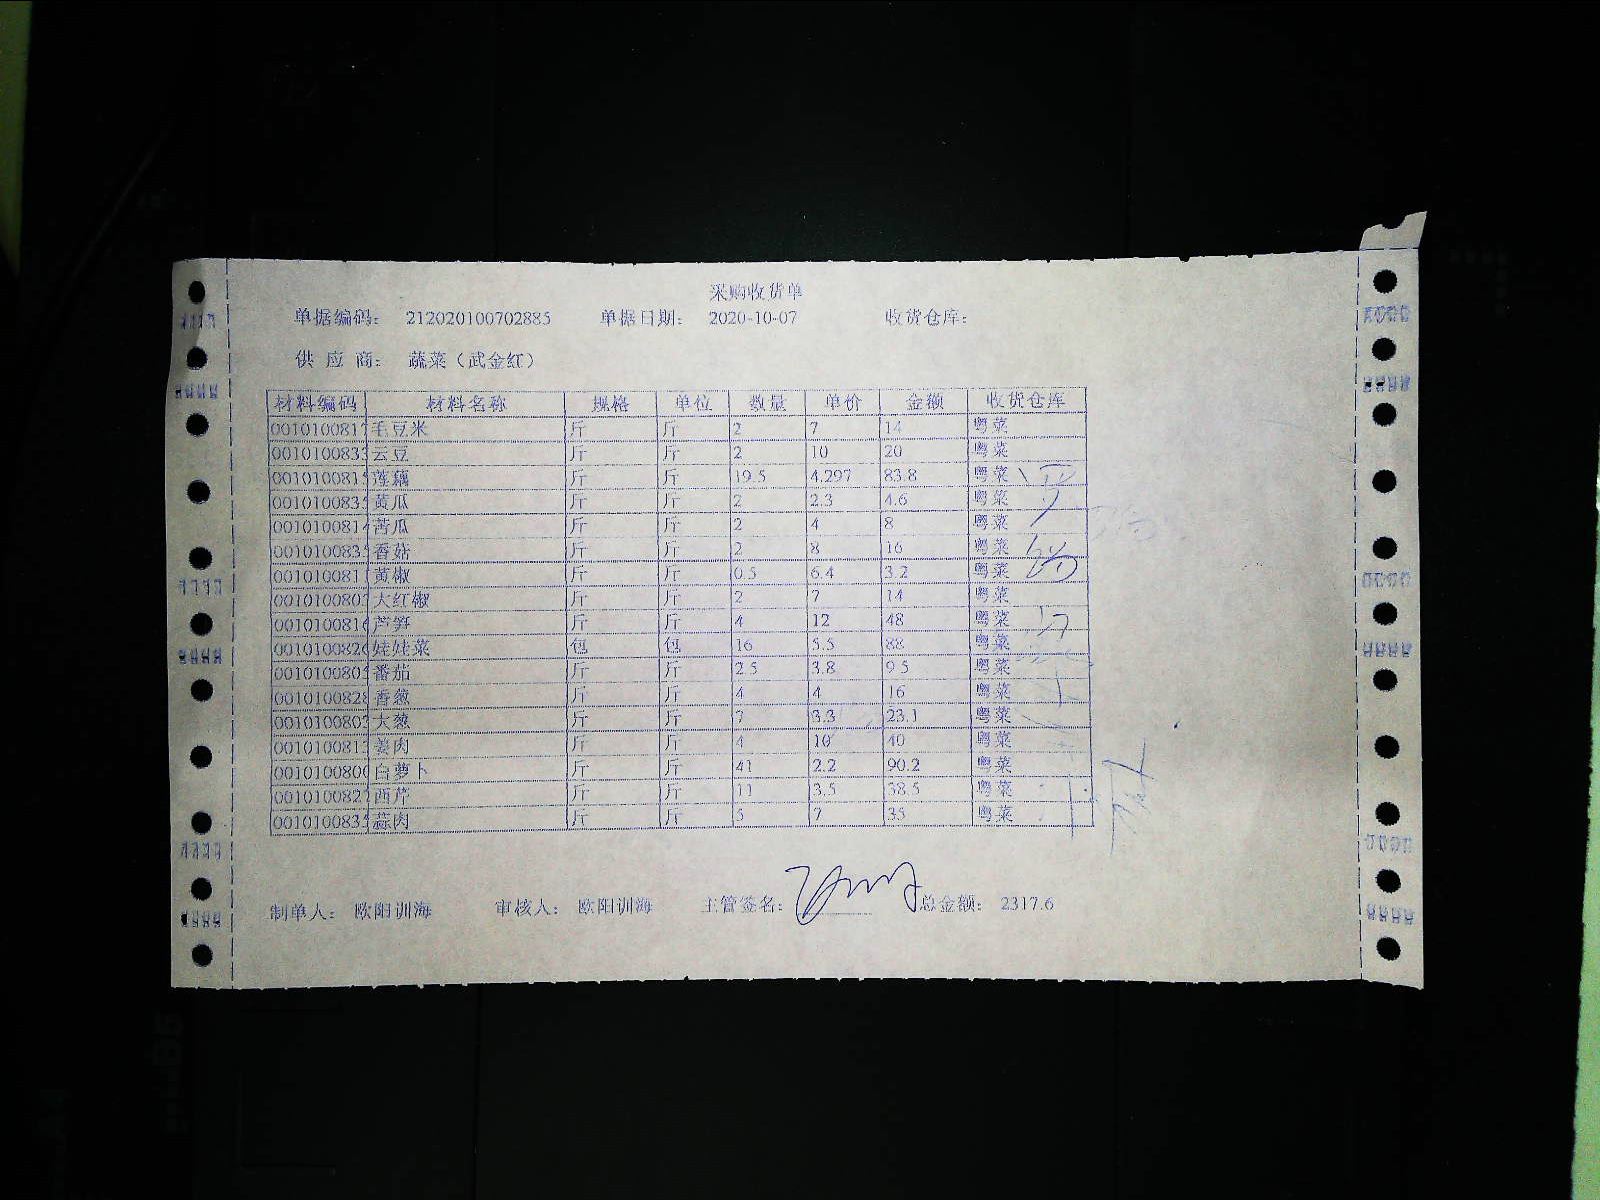 采购收货单
单据编码： 212020100702885 单据日期： 2020-10-07 收货仓库：
供 应 商： 蔬菜（武金红）
材料编码 材料名称 规格 单位 数量 单价 金额 收货仓库
0010100817 毛豆米 斤 斤 2 7 14 粤菜
0010100833 云豆 斤 斤 2 10 20 粤菜
001010081 莲藕 斤 斤 19.5 4.297 83.8 粤菜
001010083 黄瓜 斤 斤 2 2.3 4.6 粤菜
001010081 苦瓜 斤 斤 2 4 8 粤菜
001010083 香菇 斤 斤 2 8 16 粤菜
001010081 黄椒 斤 斤 0.5 6.4 3.2 粤菜
001010080 大红椒 斤 斤 2 7 14 粤菜
001010081 芦笋 斤 斤 4 12 48 粤菜
001010082 娃娃菜 包 包 16 5.5 88 粤菜
001010080 番茄 斤 斤 2.5 3.8 9.5 粤菜
001010082 香葱 斤 斤 4 4 16 粤菜
001010080 大葱 斤 斤 7 3.3 23.1 粤菜
001010081 姜肉 斤 斤 4 10 40 粤菜
001010080 白萝卜 斤 斤 41 2.2 90.2 粤菜
001010082 西芹 斤 斤 11 3.5 38.5 粤菜
001010083 蒜肉 斤 斤 5 7 35 粤菜
制单人： 欧阳训海 审核人： 欧阳训海 主管签名： 总金额： 2317.6